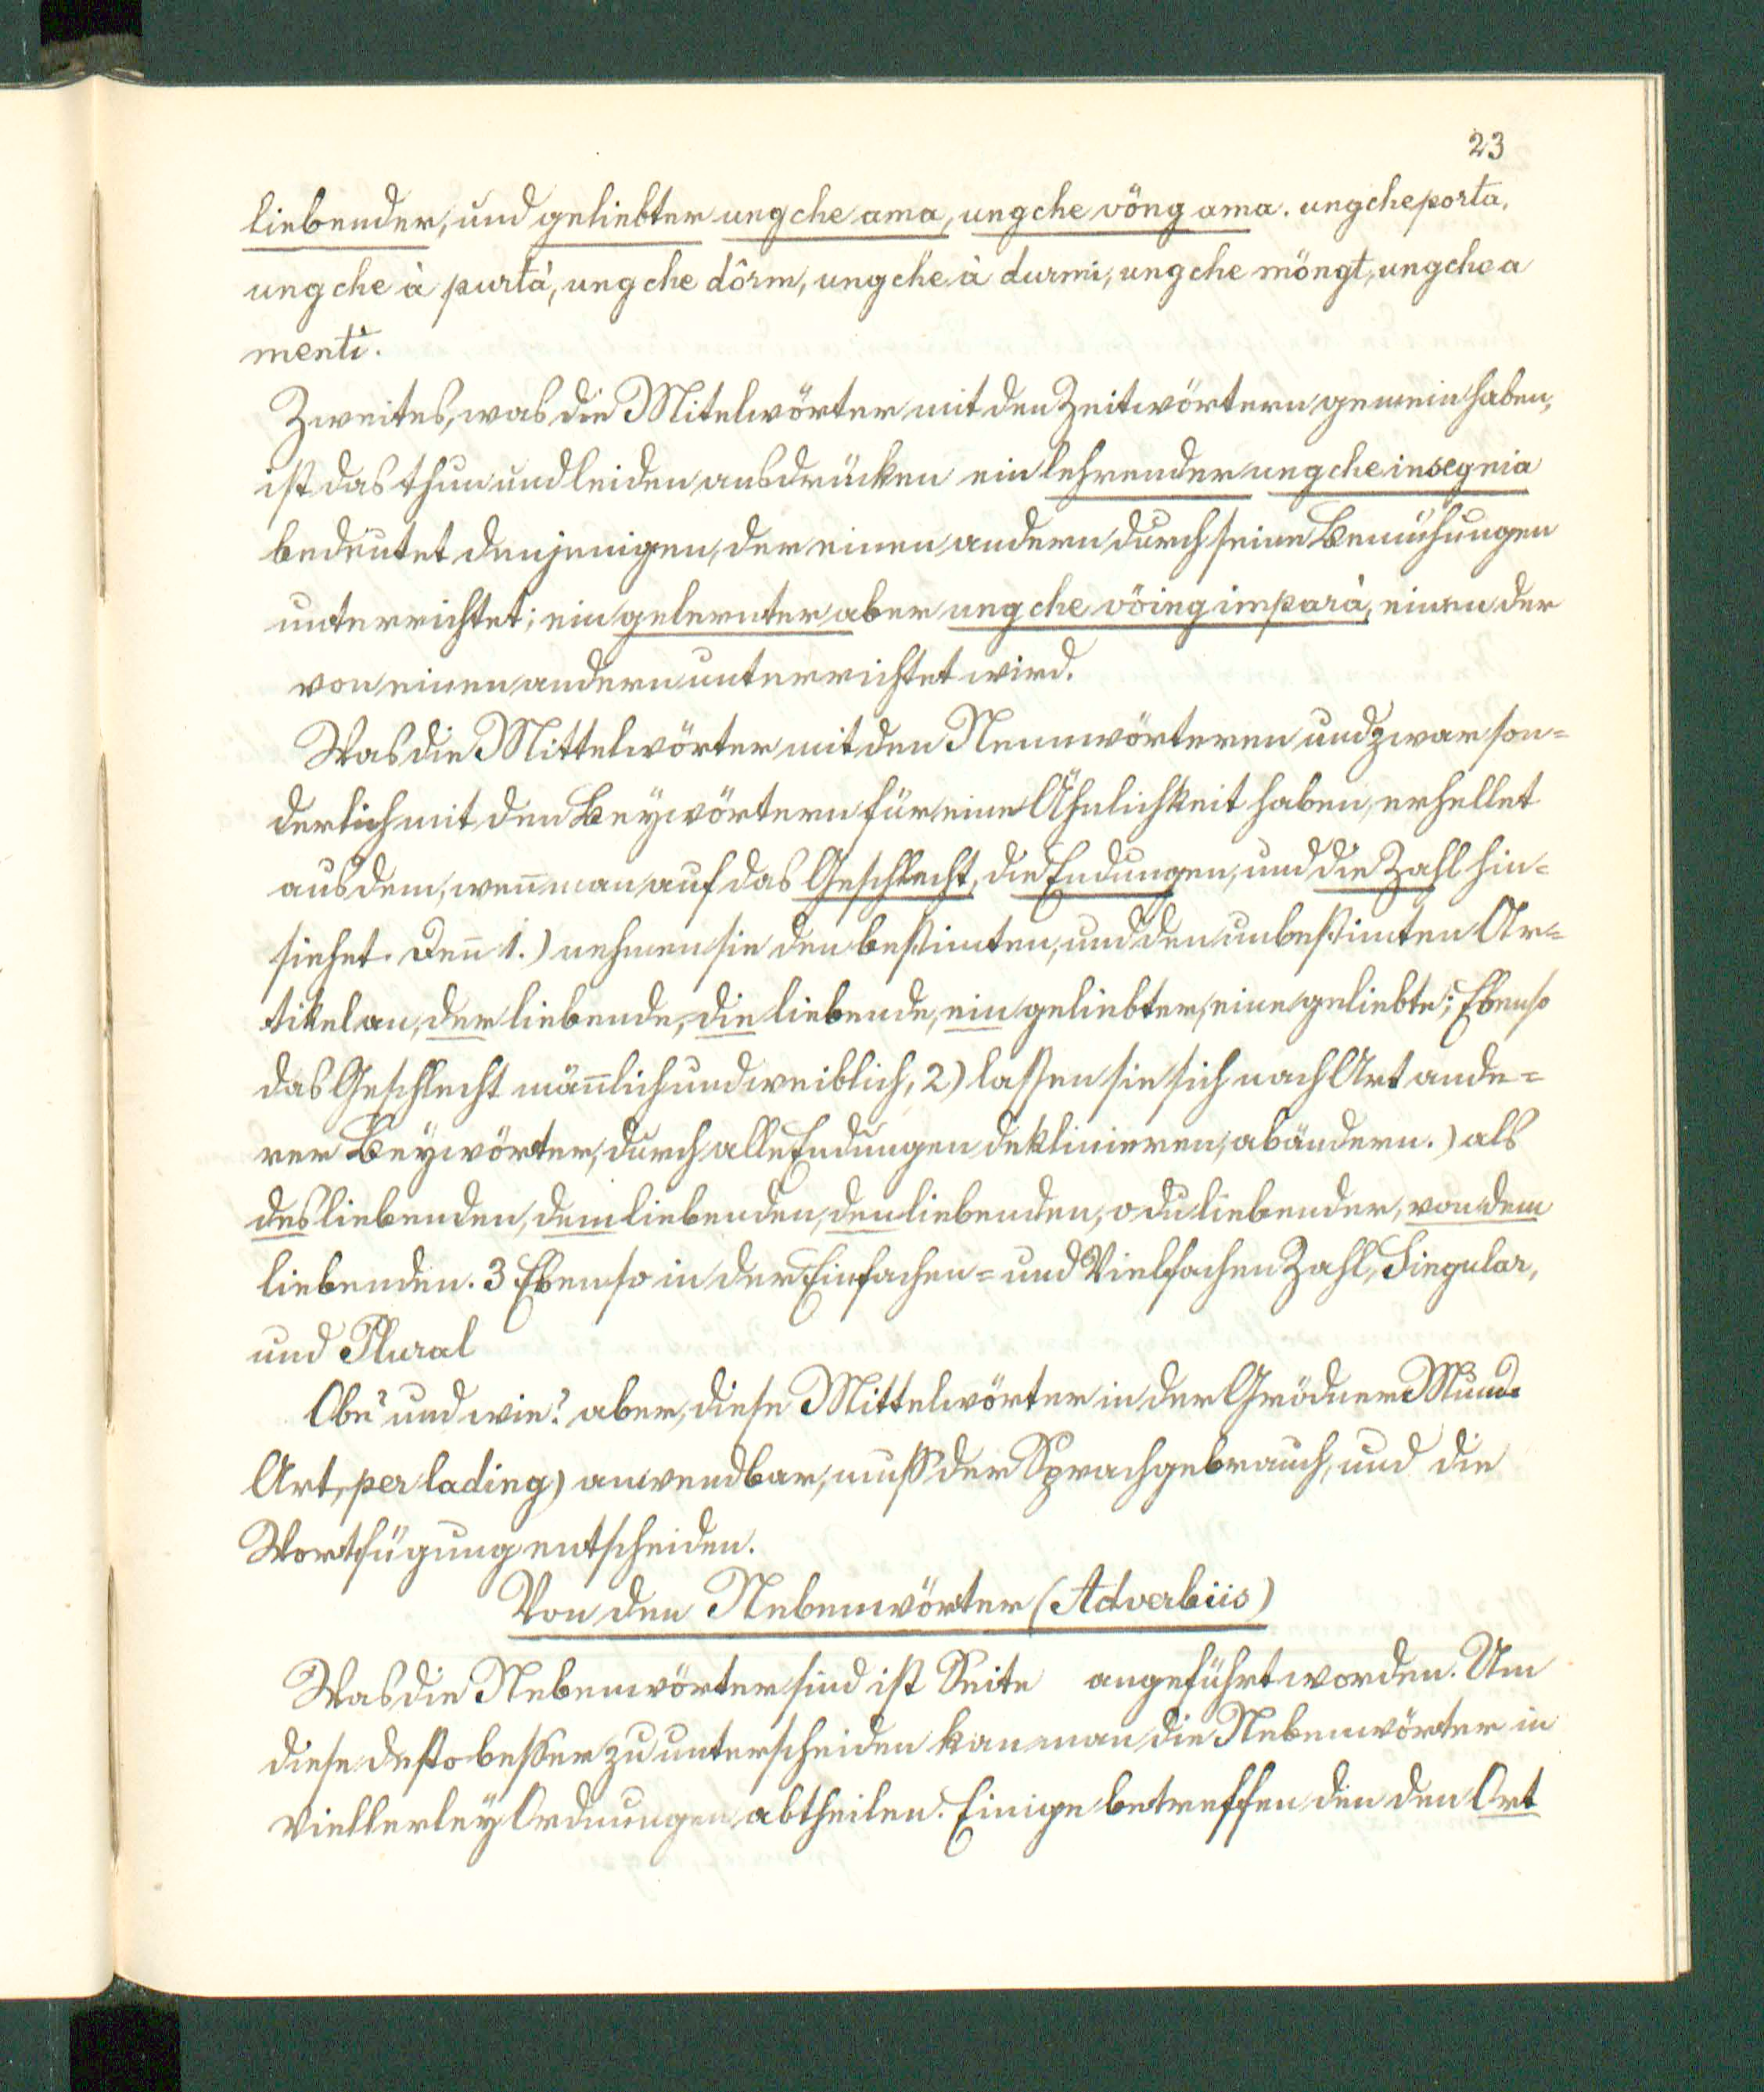 23
liebender, und geliebter ungche ama, ungche vöng ama. ungche porta,
ungche à purtà, ungche dôrm, ungche à durmi, ungche möngt, ungche a
menti.
Zweites, was die Mitelwörter mit den Zeitwörtern gemein haben,
ist das thun und leiden ausdrücken ein lehrender ungche insegnia
bedeutet denjenigen, der einen andern durch seine Bemühungen
unterrichtet; ein gelernter aber ungche vöing imparà, einen der
von einen andern unterrichtet wird.
Was die Mittelwörter mit den Nennwörteren und zwar son=
derlich mit den Beywörtern für eine Ähnlichkeit haben, erhellet
aus dem, weñ man auf das Geschlecht, die Endungen, und die Zahl hin=
siehet. Deñ 1.) nehmen sie den bestimten, und den unbestimten Ar=
tikel an, der liebende, die liebende, ein geliebter, eine geliebte; Ebenso
das Geschlecht mäñlich und weiblich, 2) lassen sie sich nach Art ande=
rer Beywörter, durch alle Endungen deklinieren, abändern.) als
des liebenden, dem liebenden, den liebenden, o du liebender, von dem
liebenden. 3 Ebenso in der Einfachen= und Vielfachen Zahl, Singular,
und Plural
Obe? und wie? aber, diese Mittelwörter in der Grödner Mund=
Art, per lading) anwendbar, muß der Sprachgebrauch, und die
Wortfügung entscheiden.
Von den Nebenwörter (Adverbiis)
Was die Nebenwörter sind ist Seite angeführt worden. Um
diese desto besser zu unterscheiden kan man die Nebenwörter in
viellerley Ordnungen abtheilen. Einige betreffen den den Ort